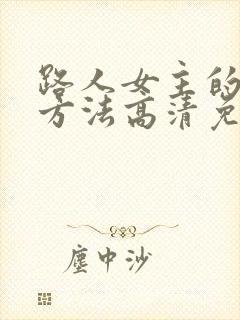 路人女主的
方法高清免
塵中沙